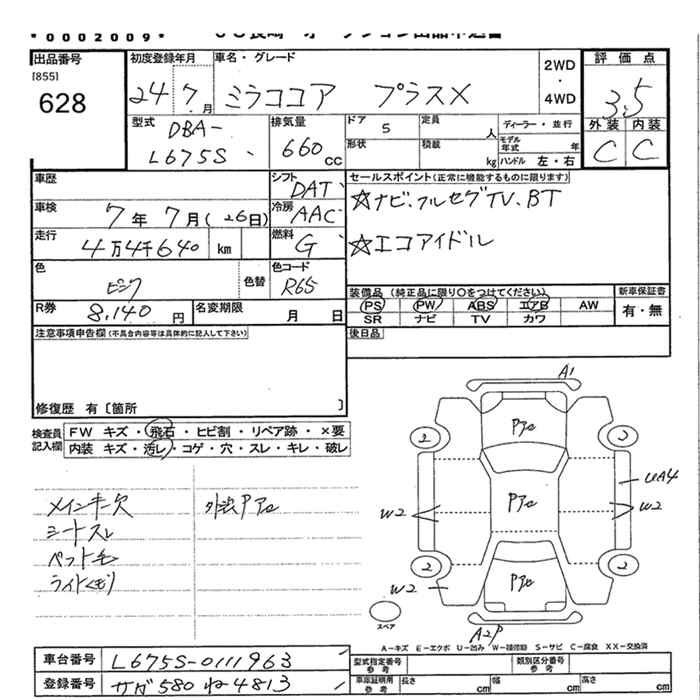 *0002009*
出品番号
[855]
628
初度登録年月
24 7 月
車名・グレード
ミラココア プラスX
2WD
・
4WD
評価点
3.5
外装 内装
C C
型式
DBA-
L675S
排気量
660 cc
ドア 5
定員 人
形状
積載 kg
ディーラー・並行
モデル年式 年
ハンドル 左・右
車歴
シフト DAT
車検 7年7月(26日)
冷房 AAC
走行 4万4千640 km
燃料 G
色 ピンク
色替
色コード R65
R券 8,140 円
名変期限 月 日
セールスポイント(正常に機能するものに限ります)
☆ナビ、フルセグTV、BT
☆エコアイドル
装備品(純正品に限り○をつけてください)
PS PW ABS エアB AW
SR ナビ TV カワ
新車保証書
有・無
後日品
注意事項申告欄(不具合内容等は具体的に記入して下さい)
修復歴 有〔箇所 〕
検査員記入欄
FW キズ・飛石・ヒビ割・リペア跡・×要
内装 キズ・汚レ・コゲ・穴・スレ・キレ・破レ
メインキー欠
シートスレ
ペット毛
ライトくもり
外装Pアc
A1
Pアc
2 2
UA4
W2 Pアc W2
2 2
W2
Pアc
スペア
A2P
A－キズ E－エクボ U－凹み W－補修跡 S－サビ C－腐食 XX－交換済
車台番号 L675S-0111963
登録番号 サガ580ね4813
型式指定番号 参考
類別区分番号 参考
車庫証明用 参考
長さ cm
幅 cm
高さ cm